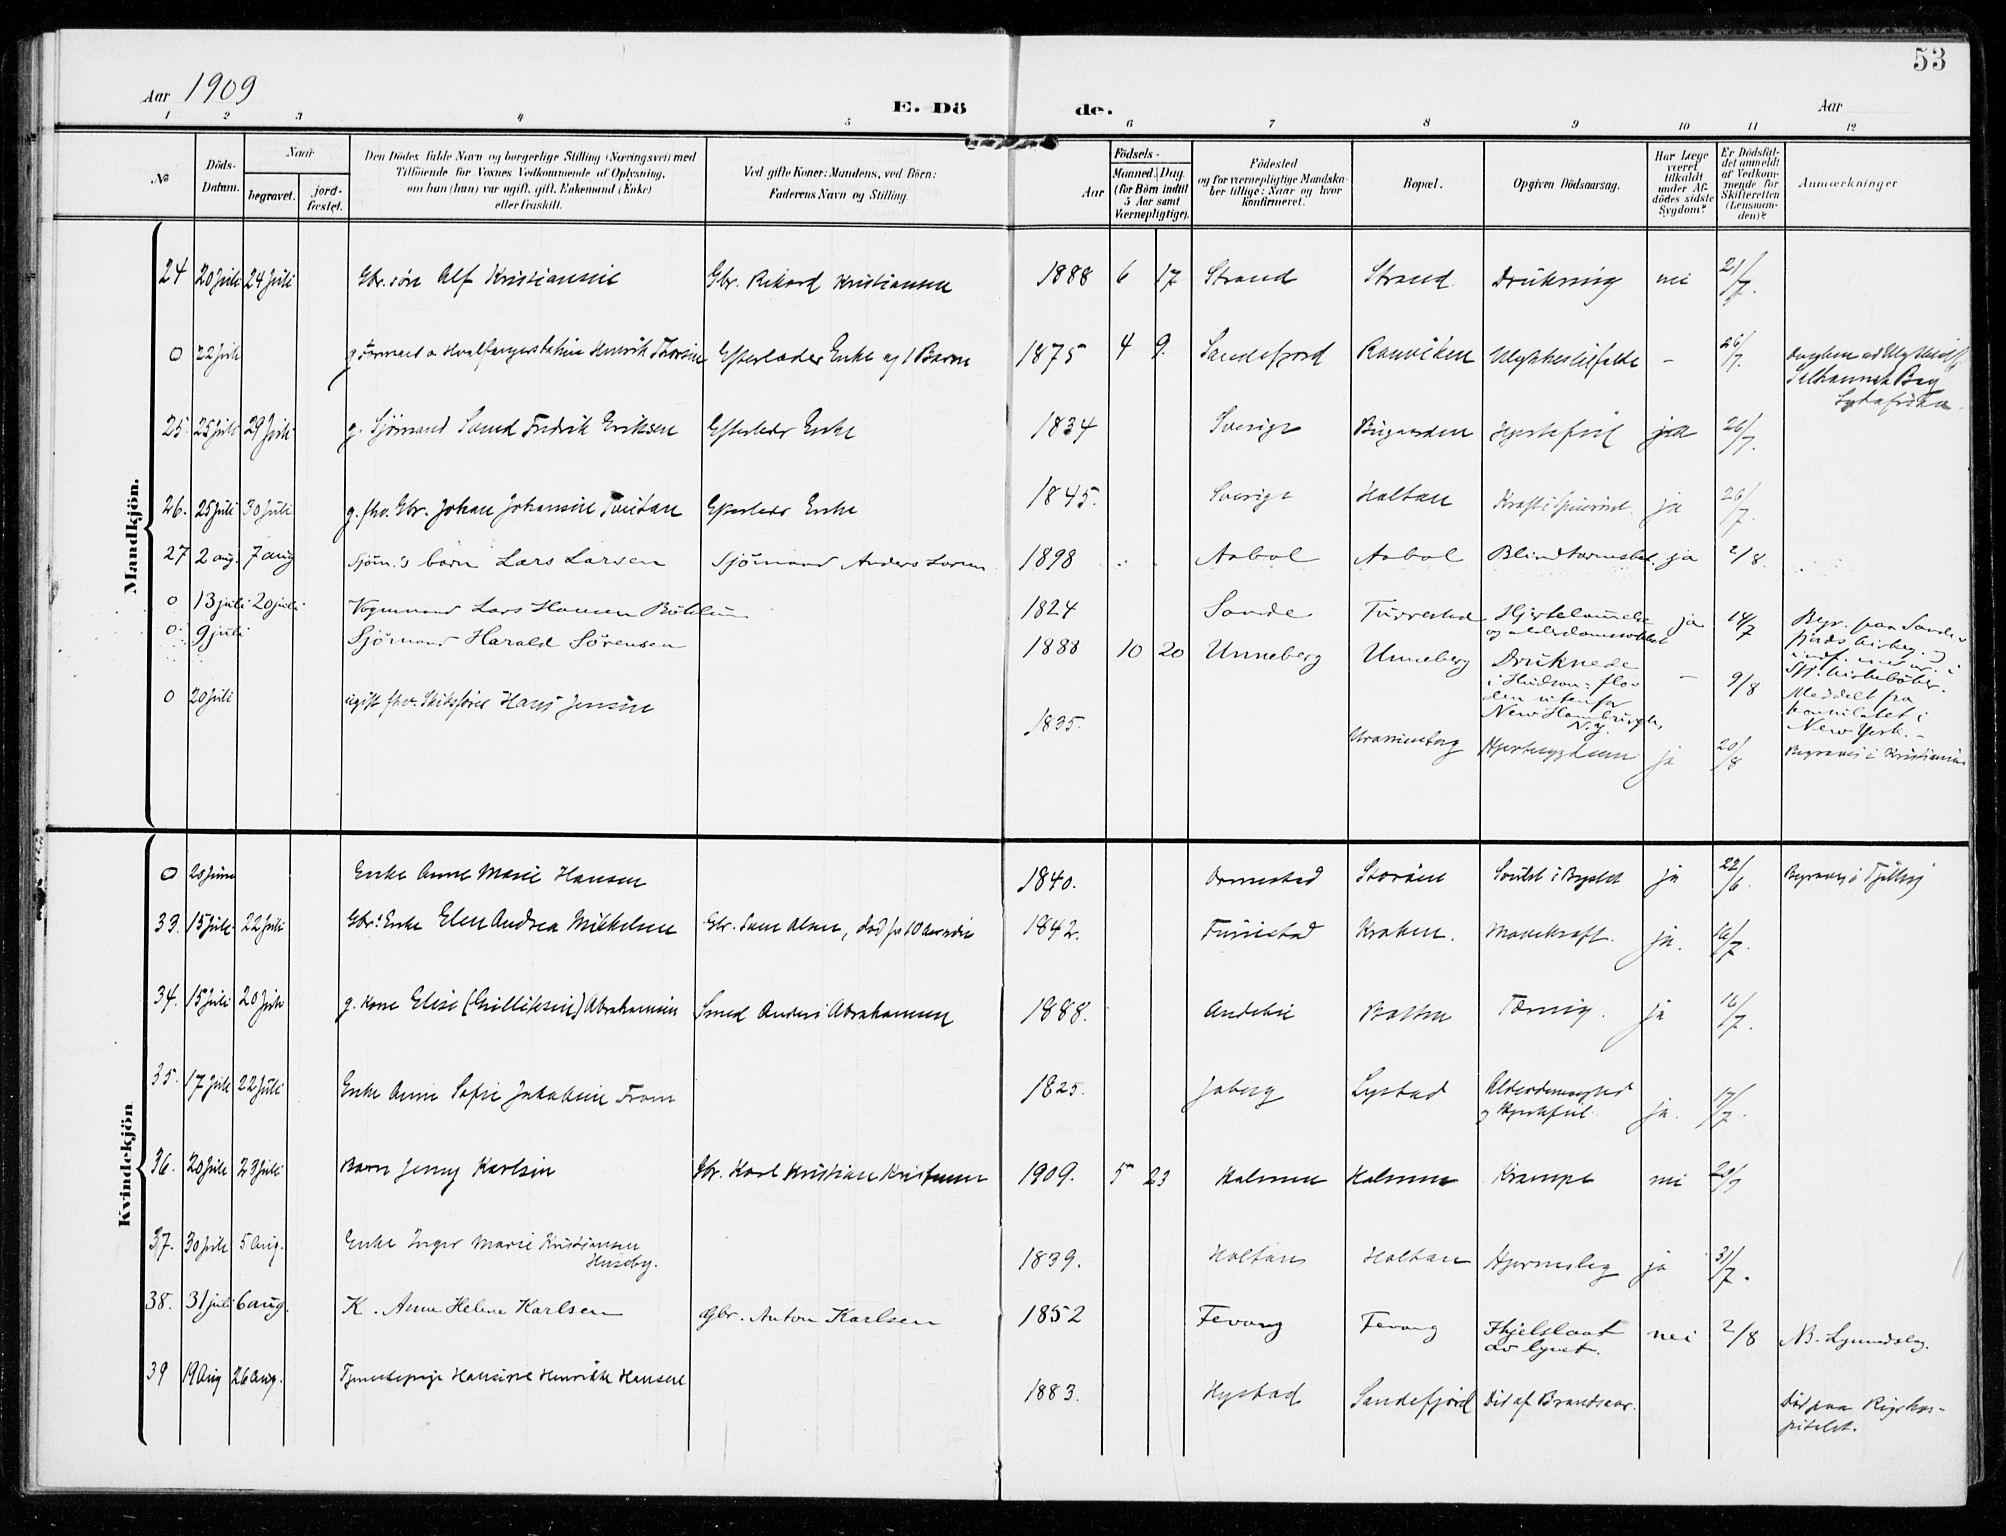 53
Aar 1909
E. Dö
de.
Aar
1 2 3 4 5 6 7 8 9 10 11 12
№
Döds-Datum.
Naar
begravet.
jord-fæstet.
Den Dödes fulde Navn og borgerlige Stilling (Næringsvei) med
Tilföiende for Voxnes Vedkommende af Oplysning,
om han (hun) var ugift, gift, Enkemand (Enke)
eller fraskilt.
Ved gifte Koner: Mandens, ved Börn:
Faderens Navn og Stilling.
Födsels-
Aar
Maaned. Dag.
(for Börn indtil
5 Aar samt
Værnepligtige).
Födested
og for værnepligtige Mandska-
ber tillige: Naar og hvor
konfirmeret.
Bopæl.
Opgiven Dödsaarsag.
Har Læge
været
tilkaldt
under Af-
dödes sidste
Sygdom?
Er Dödsfal-
det anmeldt
af Vedkom-
mende for
Skifteretten
(Lensman-
den)?
Anmærkninger
Mandkjön.
24 20 juli 24 juli Gbr. søn Alf Kristiansen Gbr. Rikard Kristiansen 1888 6 17 Strand Strand Drukning nei 21/7.
0 22 juli g. Formand a Hvalfangerstation Henrik Thorsen Efterlader Enke og 1 Barn 1875 4 9. Sandefjord Ranviken Ulykkestilfælde – 26/7.
Saldanha Bay
Sydafrika.
25. 25 juli 29 juli g. Sjömand Samd Fredrik Eriksen Efterlader Enke 1834 Sverige Bugaarden Hjertefeil ja 26/7.
26. 25 juli 30 juli g. fhv. Gbr. Johan Johansen Tveitan Efterlader Enke 1845. Sverige Haltan Kræft i Spiserøret. ja 26/7.
27 2 aug. 7 aug Sjøm.s barn Lars Larsen Sjømand Anders Larsen 1898 Aabol Aabol Blindtarmsbet. ja 2/8.
0 13 juli 20 juli Vognmand Lars Hansen 1824 Sande Furustad Hjertelammelse
og alderdomssvakhet ja 14/7 Begr. paa Sande-
fjords kirkeg. og
indf. med nr. i
Sfj. kirkebøker.
0 9 juli Sjömand Harald Sörensen 1888 10 20 Unneberg Unneberg Druknede
i Hudson-flo-
den utenfor
New Hamburgh,
N.Y. – 9/8 Meddelt fra
konsulatet i
New York. –
0 20 juli ugift fhv. Skibsfører Hans Jensen 1835. Uranienborg Hjertesygdom ja 20/8 Begravet i Kristiania
Kvindekjön
0 20 juni Enke Anne Marie Hansen 1840. Ormestad Storåen Svulst i Brystet ja 22/6. Begravet i Tjölling
33. 15 juli 22 juli Gbr.s Enke Elen Andrea Mikkelsen Gbr. Sam Olsen, død for 10 aar siden 1842. Furustad Kraken. Mavekræft. ja. 16/7.
34. 15 juli 20 juli g. Kone Elise (Gulliksen) Abrahamsen Smed Anders Abrahamsen 1888. Andebu Botten Tæring. ja 16/7.
35. 17 juli 22 juli Enke Anne Sofie Jakobine Fram 1825. Joberg Lystad Alderdomssvaghed
og Hjertefeil ja. 17/7.
36. 20 juli 23 juli Barn Jenny Karlsen Gbr. Karl Kristian Kristiansen 1909. 5 23 Halmen Halmen Krampe nei 20/7
37. 30 juli 5 Aug. Enke Inger Marie Kristiansen
Huseby. 1839. Holtan Holtan Hjerneslag ja 31/7.
38. 31 juli 6 aug. K. Anne Helene Karlsen Gbr. Anton Karlsen 1852 Fevang Fevang Ihjelslaat
av lynet. nei 2/8 NB. Lynnedslag.
39 19 Aug 26 Aug. Tjenestepige Hansine Henrikke Hansen 1883. Hystad Sandefjord Död af Brandsaar. Död paa Rigshos-
pitalet.